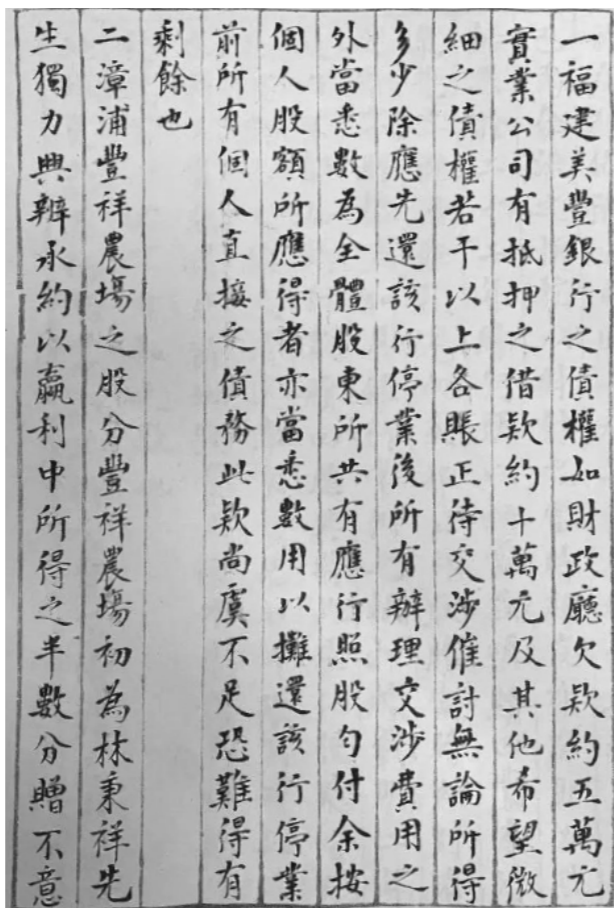 一福建美豐銀行之債權如財政廳欠欵約五萬元
實業公司有抵押之借欵約十萬元及其他希望微
細之債權若干以上各賬正待交涉催討無論所得
多少除應先還該行停業後所有辦理交涉費用之
外當悉數為全體股東所共有應行照股勻付余按
個人股額所應得者亦當悉數用以攤還該行停業
前所有個人直接之債務此欵尚虞不足恐難得有
剩餘也
二漳浦豐祥農場之股分豐祥農場初為林秉祥先
生獨力興辦承約以贏利中所得之半數分贈不意